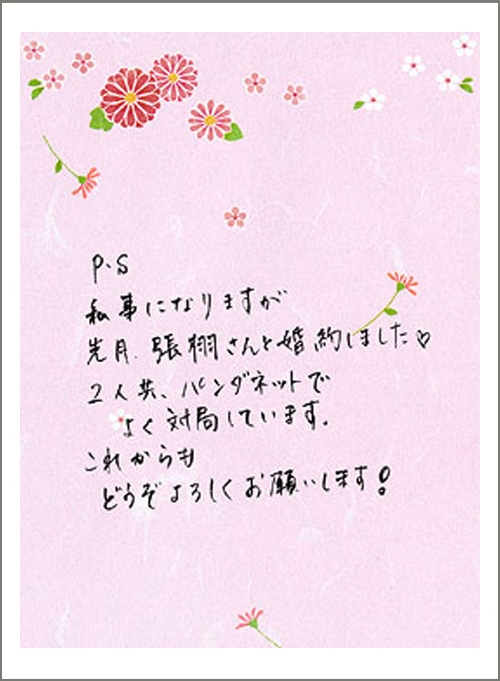 P.S
私事になりますが
先月、張栩さんと婚約しました♡
2人共、パンダネットで
よく対局しています。
これからも
どうぞよろしくお願いします!